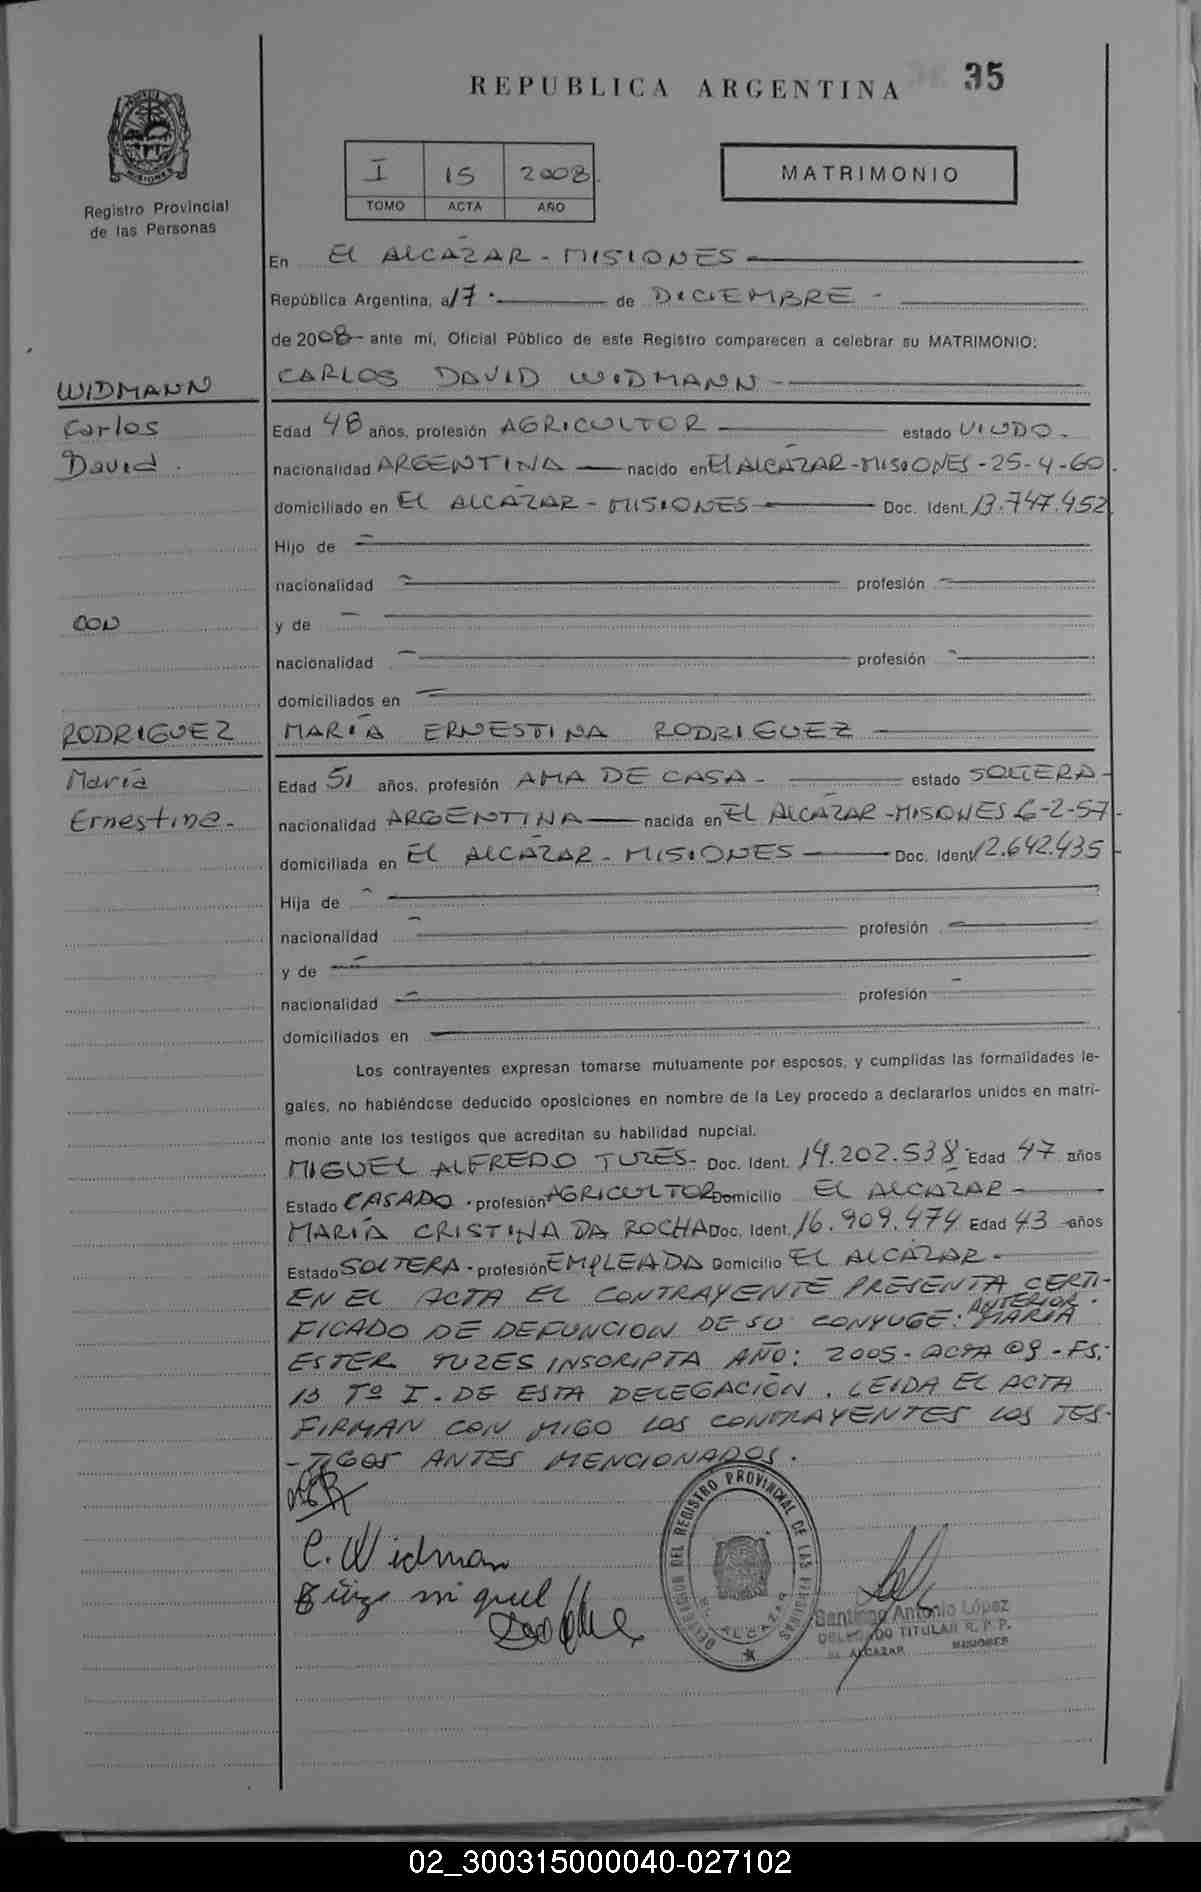 REPUBLICA ARGENTINA 35
MISIONES
Registro Provincial
de las Personas
I 15 2008.
TOMO ACTA AÑO
MATRIMONIO
En El ALCÁZAR - MISIONES
República Argentina, a 17 . de DICIEMBRE -
de 2008 - ante mí, Oficial Público de este Registro comparecen a celebrar su MATRIMONIO:
WIDMANN CARLOS DAVID WIDMANN -
Carlos Edad 48 años, profesión AGRICULTOR estado VIUDO -
David . nacionalidad ARGENTINA nacido en El ALCÁZAR - MISIONES - 25-4-60.
domiciliado en EL ALCÁZAR - MISIONES Doc. Ident. 13.747.452
Hijo de -
nacionalidad - profesión -
CON y de -
nacionalidad - profesión -
domiciliados en -
RODRIGUEZ MARÍA ERNESTINA RODRIGUEZ
María Edad 51 años, profesión AMA DE CASA - estado SOLTERA -
Ernestina - nacionalidad ARGENTINA nacida en EL ALCÁZAR - MISIONES 6-2-57 -
domiciliada en EL ALCÁZAR - MISIONES Doc. Ident. 12.642.435 -
Hija de -
nacionalidad - profesión -
y de -
nacionalidad - profesión -
domiciliados en
Los contrayentes expresan tomarse mutuamente por esposos, y cumplidas las formalidades le-
gales, no habiéndose deducido oposiciones en nombre de la Ley procedo a declararlos unidos en matri-
monio ante los testigos que acreditan su habilidad nupcial.
MIGUEL ALFREDO TUZES - Doc. Ident. 14.202.538 - Edad 47 años
Estado CASADO - profesión AGRICULTOR Domicilio EL ALCÁZAR -
MARÍA CRISTINA DA ROCHA Doc. Ident. 16.909.474 Edad 43 años
Estado SOLTERA - profesión EMPLEADA Domicilio EL ALCÁZAR -
EN EL ACTA EL CONTRAYENTE PRESENTA CERTI-
ANTERIOR.
FICADO DE DEFUNCION DE SU CONYUGE: MARIA
ESTER TUZES INSCRIPTA AÑO: 2005 - ACTA 09 - FS:
13 Tº I - DE ESTA DELEGACIÓN. LEIDA EL ACTA
FIRMAN CON MIGO LOS CONTRAYENTES LOS TES-
- TIGOS ANTES MENCIONADOS.
C. Widman
miguel
DELEGACION DEL REGISTRO PROVINCIAL DE LAS PERSONAS
EL ALCAZAR
Santiago Antonio López
DELEGADO TITULAR R. P. P.
EL ALCAZAR MISIONES
02_300315000040-027102